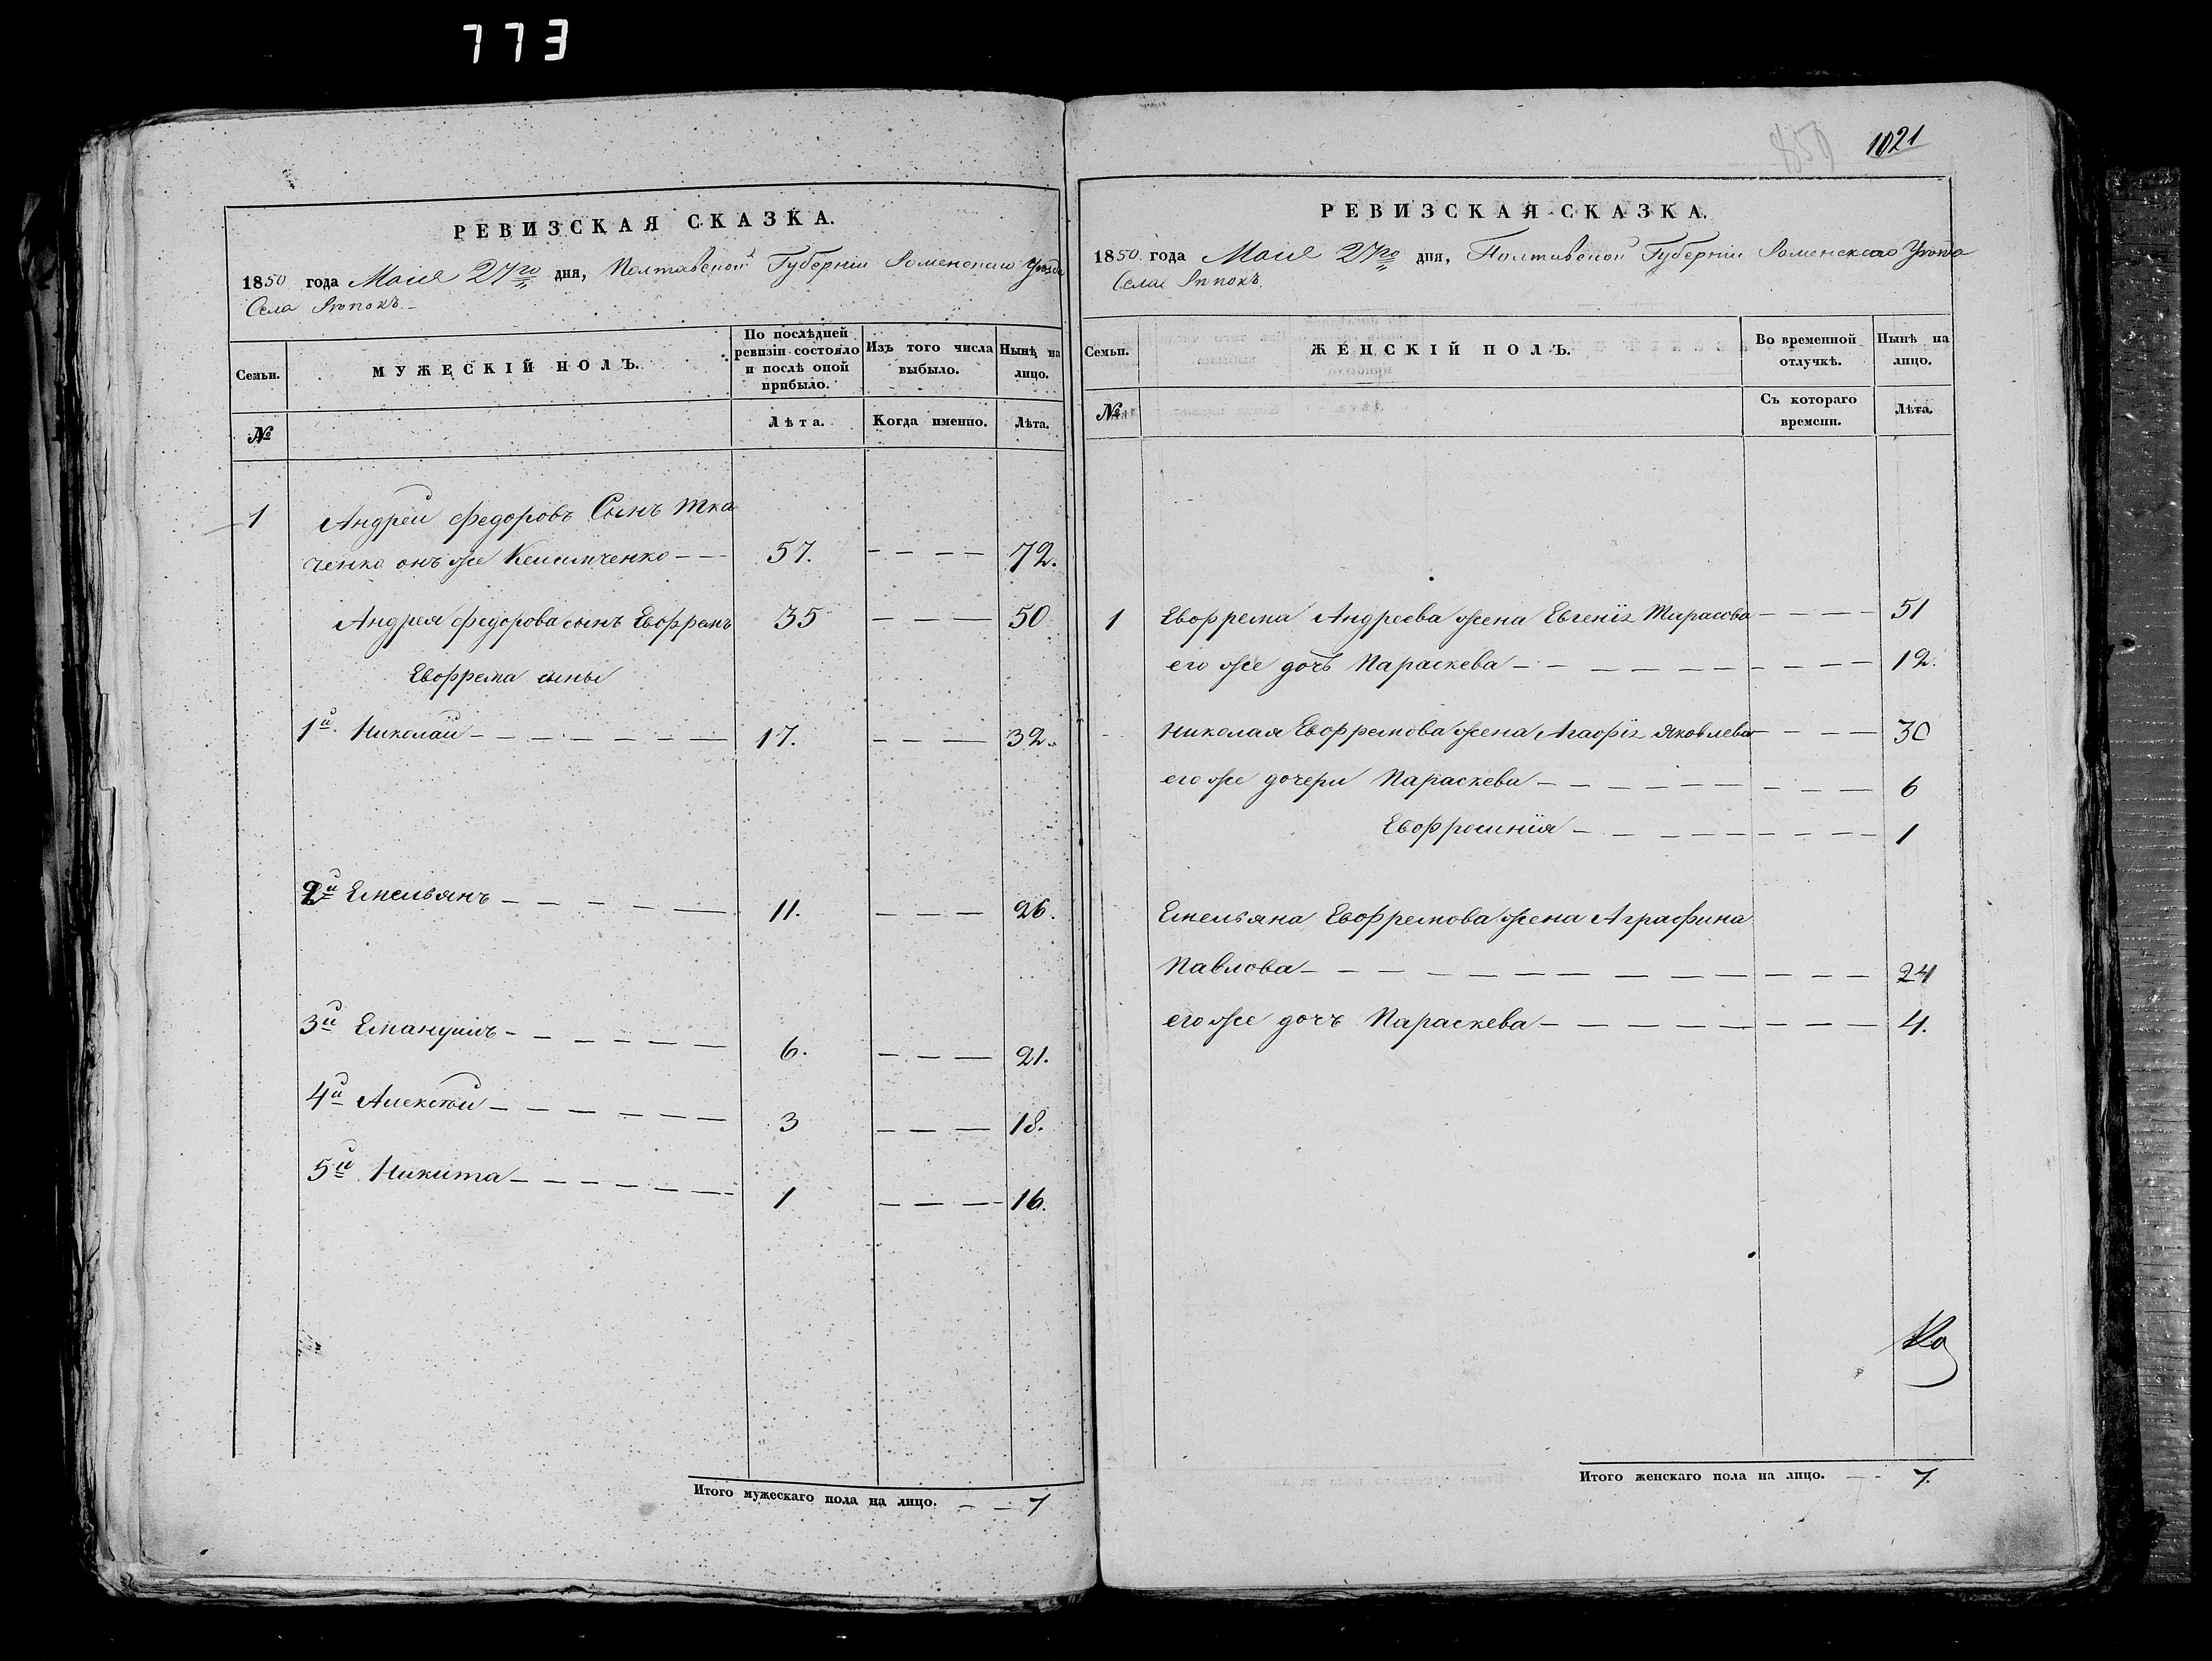 773
РЕВИЗСКАЯ СКАЗКА.
1850 года Маія 27го дня, Полтавской Губерніи Роменскаго Уѣзда
Села Рѣпокъ.
Семьи.
МУЖЕСКІЙ ПОЛЪ.
По послѣдней ревизіи состояло и послѣ оной прибыло.
Изъ того числа выбыло.
Нынѣ на лицо.
№
Лѣта.
Когда именно.
Лѣта.
1 Андрей Федоровъ Сынъ Тка
ченко онъ же 57. 72.
Андрея Федорова сынъ Евфремъ 35 50
Евфрема сыны
1й Николай 17. 32.
2й Емельянъ 11. 26.
3й Емануилъ 6. 21.
4й Алексѣй 3 18.
5й Никита 1 16.
Итого мужескаго пола на лицо. 7
1021
РЕВИЗСКАЯ СКАЗКА.
1850 года Маія 27го дня, Полтавской Губерніи Роменскаго Уѣзда
Села Рѣпокъ.
Семьи.
ЖЕНСКІЙ ПОЛЪ.
Во временной отлучкѣ.
Нынѣ на лицо.
№
Съ котораго времени.
Лѣта.
1 Евфрема Андреева жена Евгенія Тарасова 51
его же дочъ Параскева 12.
Николая Евфремова жена Агафія Яковлева 30
его же дочери Параскева 6
Евфросинія 1
Емельяна Евфремова жена Аграфина
Павлова 24
его же дочъ Параскева 4.
Ко
Итого женскаго пола на лицо. 7.